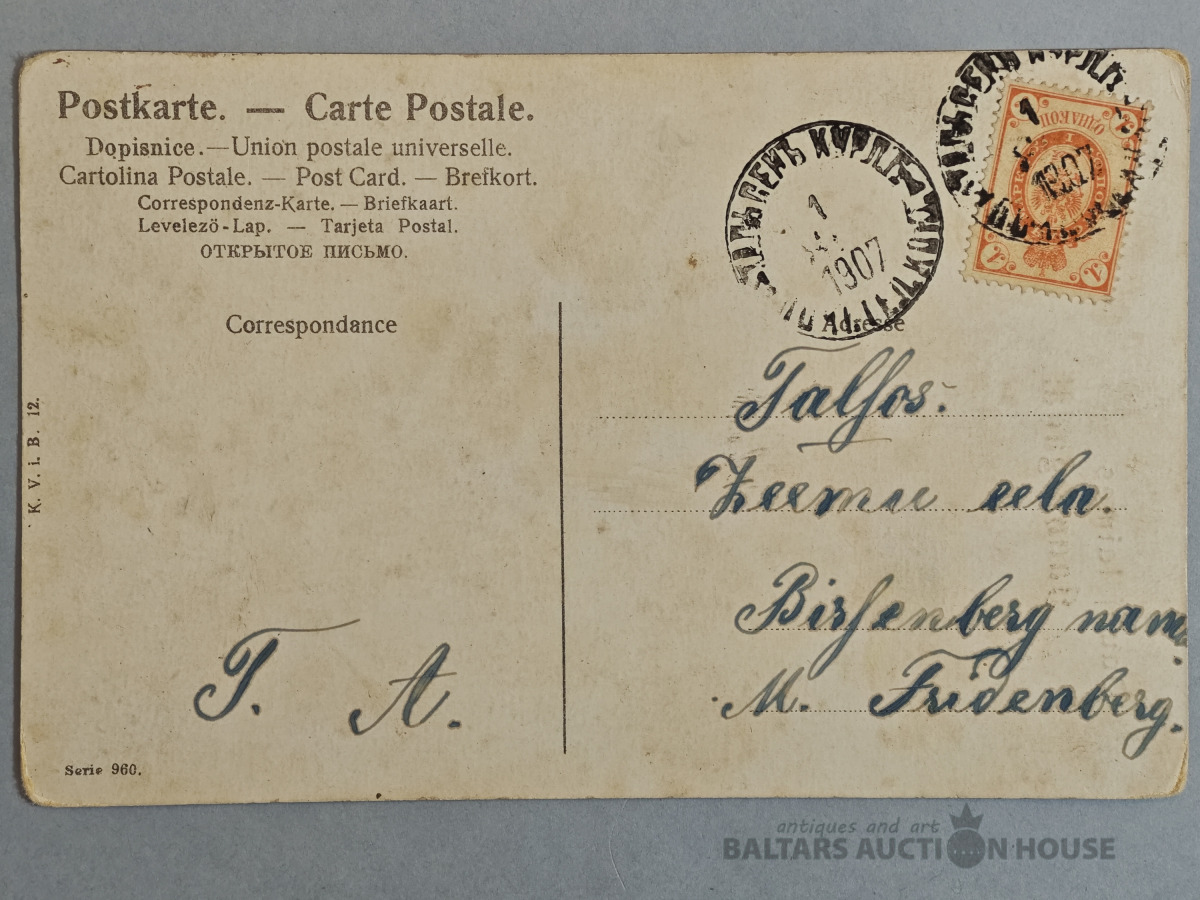 Postkarte. — Carte Postale.
Dopisnice.—Union postale universelle.
Cartolina Postale. — Post Card. — Brefkort.
Correspondenz-Karte. — Briefkaart.
Levelező-Lap. — Tarjeta Postal.
ОТКРЫТОЕ ПИСЬМО.
Correspondance
Adresse
1
1907
1
1907
Talsos.
Zeemu eela.
Birsenberg nam
M. Fridenberg.
T. A.
K. V. i. B. 12.
Serie 960.
antiques and art
BALTARS AUCTION HOUSE